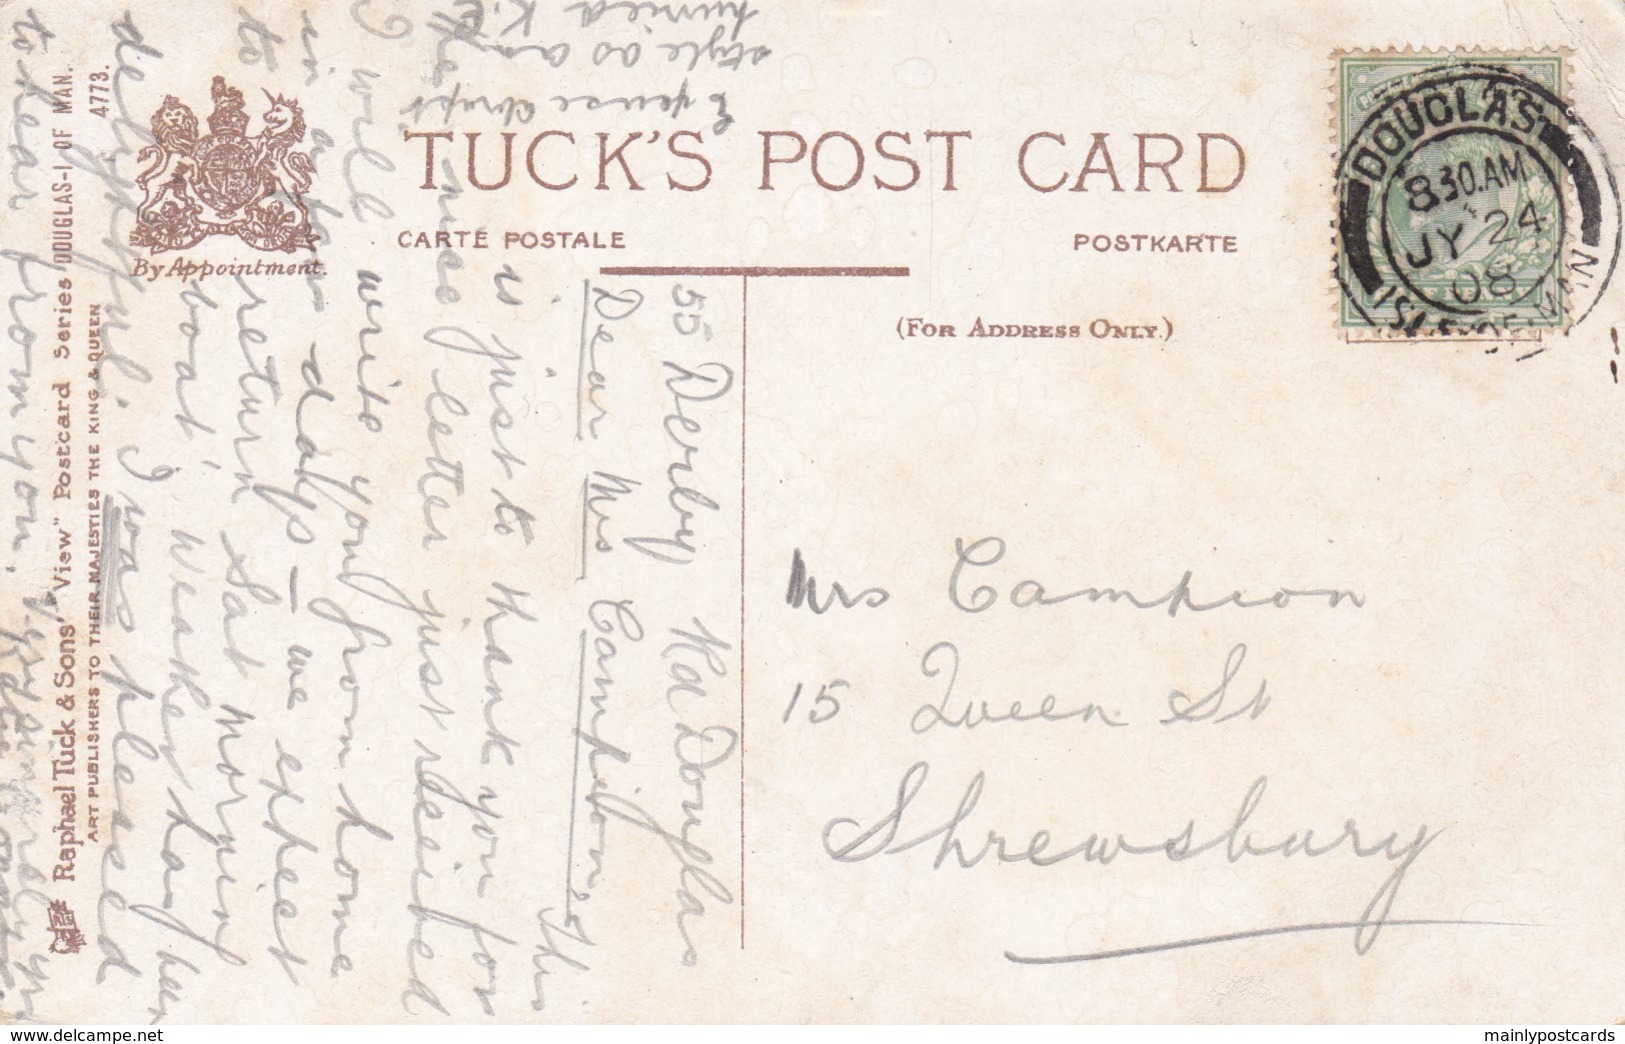 TUCK'S POST CARD
CARTE POSTALE
POSTKARTE
(FOR ADDRESS ONLY.)
By Appointment.
Raphael Tuck & Sons' "View" Postcard Series DOUGLAS-I OF MAN. 4773.
ART PUBLISHERS TO THEIR MAJESTIES THE KING & QUEEN
DOUGLAS
8 30.AM
JY 24
08
ISLE-OF-MAN
Mrs Campion
15 Queen St
Shrewsbury
55 Derby Rd Douglas
Dear Mrs Campion, This
is just to thank you for
nice letter just received
I will write you from home
in a few days — we expect
to return Sat morning
boat. Weather has been
delightful. I was pleased
to hear from you.
style as am
hurried
www.delcampe.net
mainlypostcards